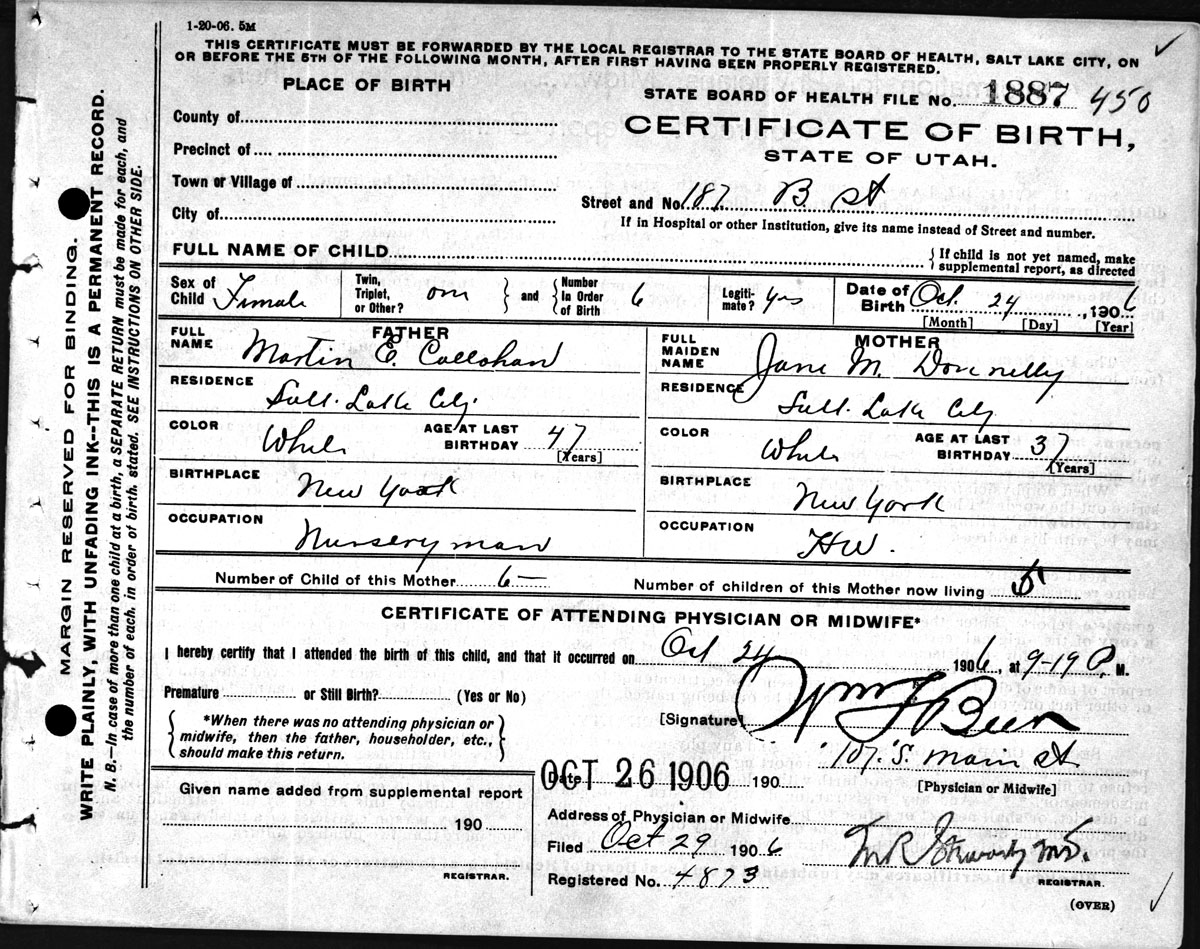 1-20-06. 5M
THIS CERTIFICATE MUST BE FORWARDED BY THE LOCAL REGISTRAR TO THE STATE BOARD OF HEALTH, SALT LAKE CITY, ON
OR BEFORE THE 5TH OF THE FOLLOWING MONTH, AFTER FIRST HAVING BEEN PROPERLY REGISTERED.
MARGIN RESERVED FOR BINDING.
WRITE PLAINLY, WITH UNFADING INK--THIS IS A PERMANENT RECORD.
N. B.—In case of more than one child at a birth, a SEPARATE RETURN must be made for each, and
the number of each, in order of birth, stated. SEE INSTRUCTIONS ON OTHER SIDE.
PLACE OF BIRTH
County of
Precinct of
Town or Village of
City of
STATE BOARD OF HEALTH FILE No. 1887 450
CERTIFICATE OF BIRTH,
STATE OF UTAH.
Street and No. 187 B St
If in Hospital or other Institution, give its name instead of Street and number.
FULL NAME OF CHILD { If child is not yet named, make
supplemental report, as directed
Sex of Child Female Twin, Triplet, or Other? one } and { Number in Order of Birth 6 Legiti-mate? yes Date of Birth Oct. 24, 1906
[Month] [Day] [Year]
FATHER
FULL NAME Martin E. Callohan
RESIDENCE Salt Lake City.
COLOR White AGE AT LAST BIRTHDAY 47
[Years]
BIRTHPLACE New York
OCCUPATION Nurseryman
MOTHER
FULL MAIDEN NAME Jane M. Donnelly
RESIDENCE Salt Lake City
COLOR White AGE AT LAST BIRTHDAY
[Years]
BIRTHPLACE New York
OCCUPATION HW.
Number of Child of this Mother 6 Number of children of this Mother now living
CERTIFICATE OF ATTENDING PHYSICIAN OR MIDWIFE*
I hereby certify that I attended the birth of this child, and that it occurred on Oct 24 1906, at 9-19 P. M.
Premature or Still Birth? (Yes or No)
{ *When there was no attending physician or
midwife, then the father, householder, etc.,
should make this return. }
[Signature] Wm F Beer
107. S. Main St.
[Physician or Midwife]
Date 190
OCT 26 1906
Given name added from supplemental report
190
REGISTRAR.
Address of Physician or Midwife
Filed Oct 29 1906
Registered No. 4873
REGISTRAR.
(OVER)